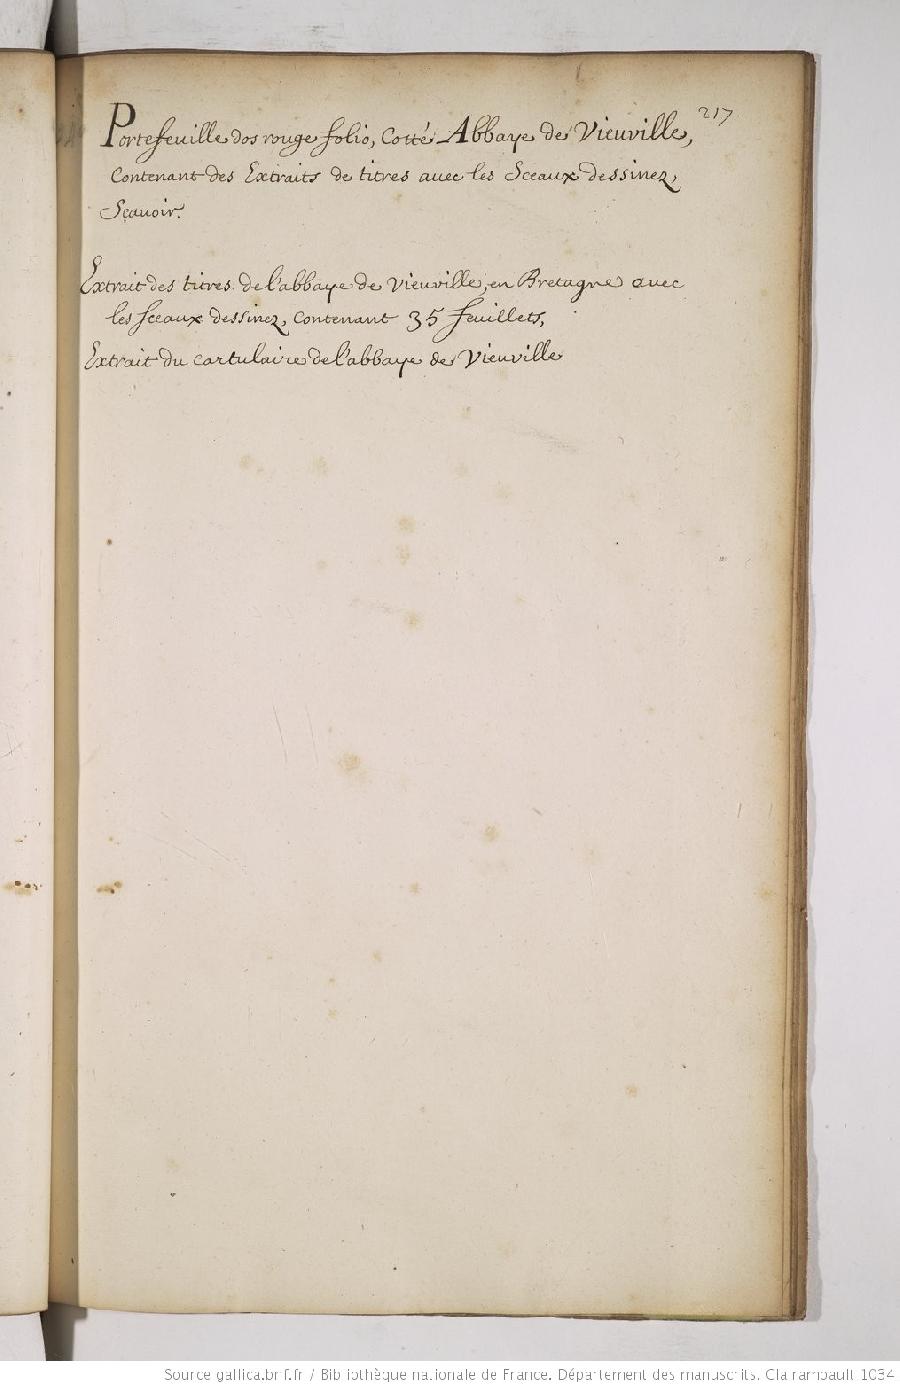 217
Portefeuille dos rouge folio, Cotté Abbaye de Vieuville,
Contenant des Extraits de titres avec les Sceaux dessinez,
Sçavoir.
Extrait des titres de l'abbaye de Vieuville, en Bretagne avec
les sceaux dessinez, Contenant 35 feuillets,
Extrait du cartulaire de l'abbaye de Vieuville
Source gallica.bnf.fr / Bibliothèque nationale de France. Département des manuscrits. Clairambault 1034